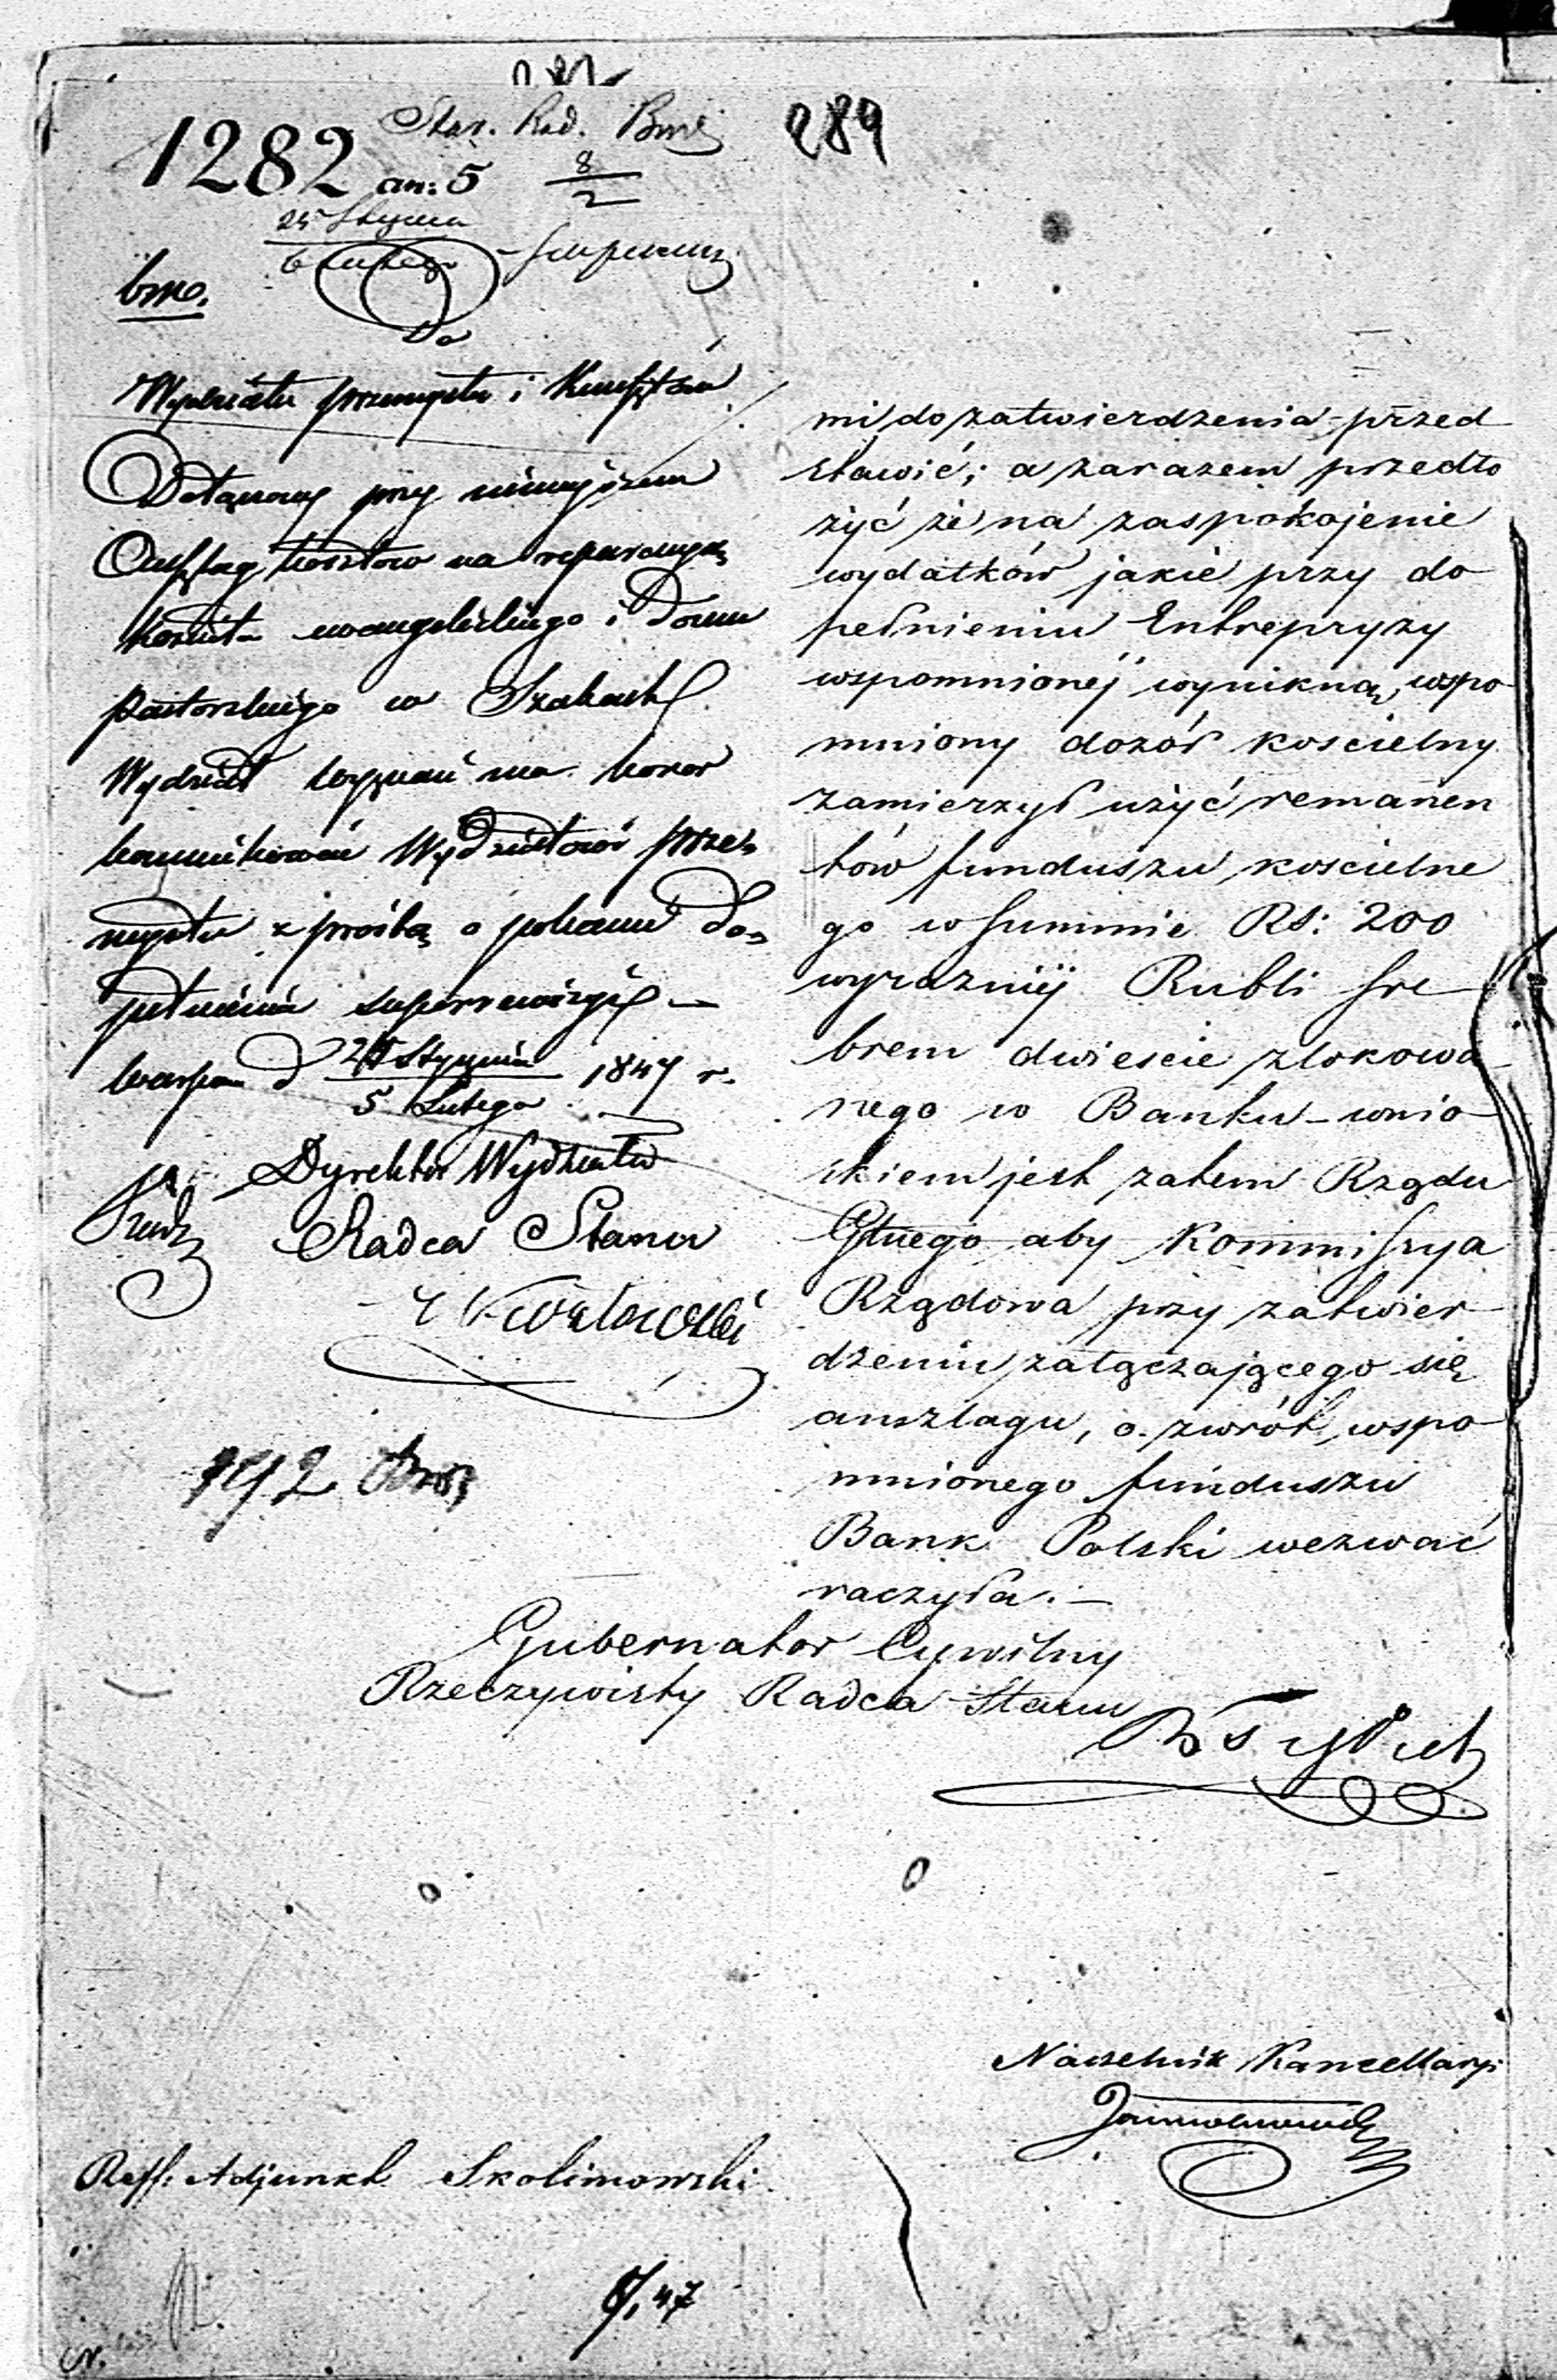 289
1282 an: 5 8/2
25 Stycznia
6 Lutego
Do
Wydziału przemysłu i Kunsztów
Dołączony przy niniejszem
Anszlag kosztów na reparacyą
kościoła ewangelickiego i domu
pastorskiego w Szakach
Wydział Wyznań ma honor
kommunikować Wydziałowi prze-
mysłu z prośbą o polecenie do-
pełnienia superrewizyi —
Warszawa d 24 Stycznia 1847 r.
5 Lutego
Dyrektor Wydziału
Radca Stanu
192
mi do zatwierdzenia przed
stawić; a zarazem przedło
żyć że na zaspokojenie
wydatków jakie przy do
pełnieniu Entrepryzy
wspomnionej wynikną, wspo
mniony dozór koscielny
zamierzył użyć remanen
tów funduszu koscielne
go w summie Rs: 200
wyrazniéj Rubli sre
brem dwiescie zlokowa
nego w Banku – wnio
skiem jest zatem Rządu
Głnego aby Kommissya
Rządowa przy zatwier
dzeniu załączającego się
anszlagu, o zwrót wspo
mnionego funduszu
Bank Polski wezwać
raczyła. —
Gubernator Cywilny
Rzeczywisty Radca Stanu
Naczelnik Kancellaryi
Reff: Adjunkt Skolimowski